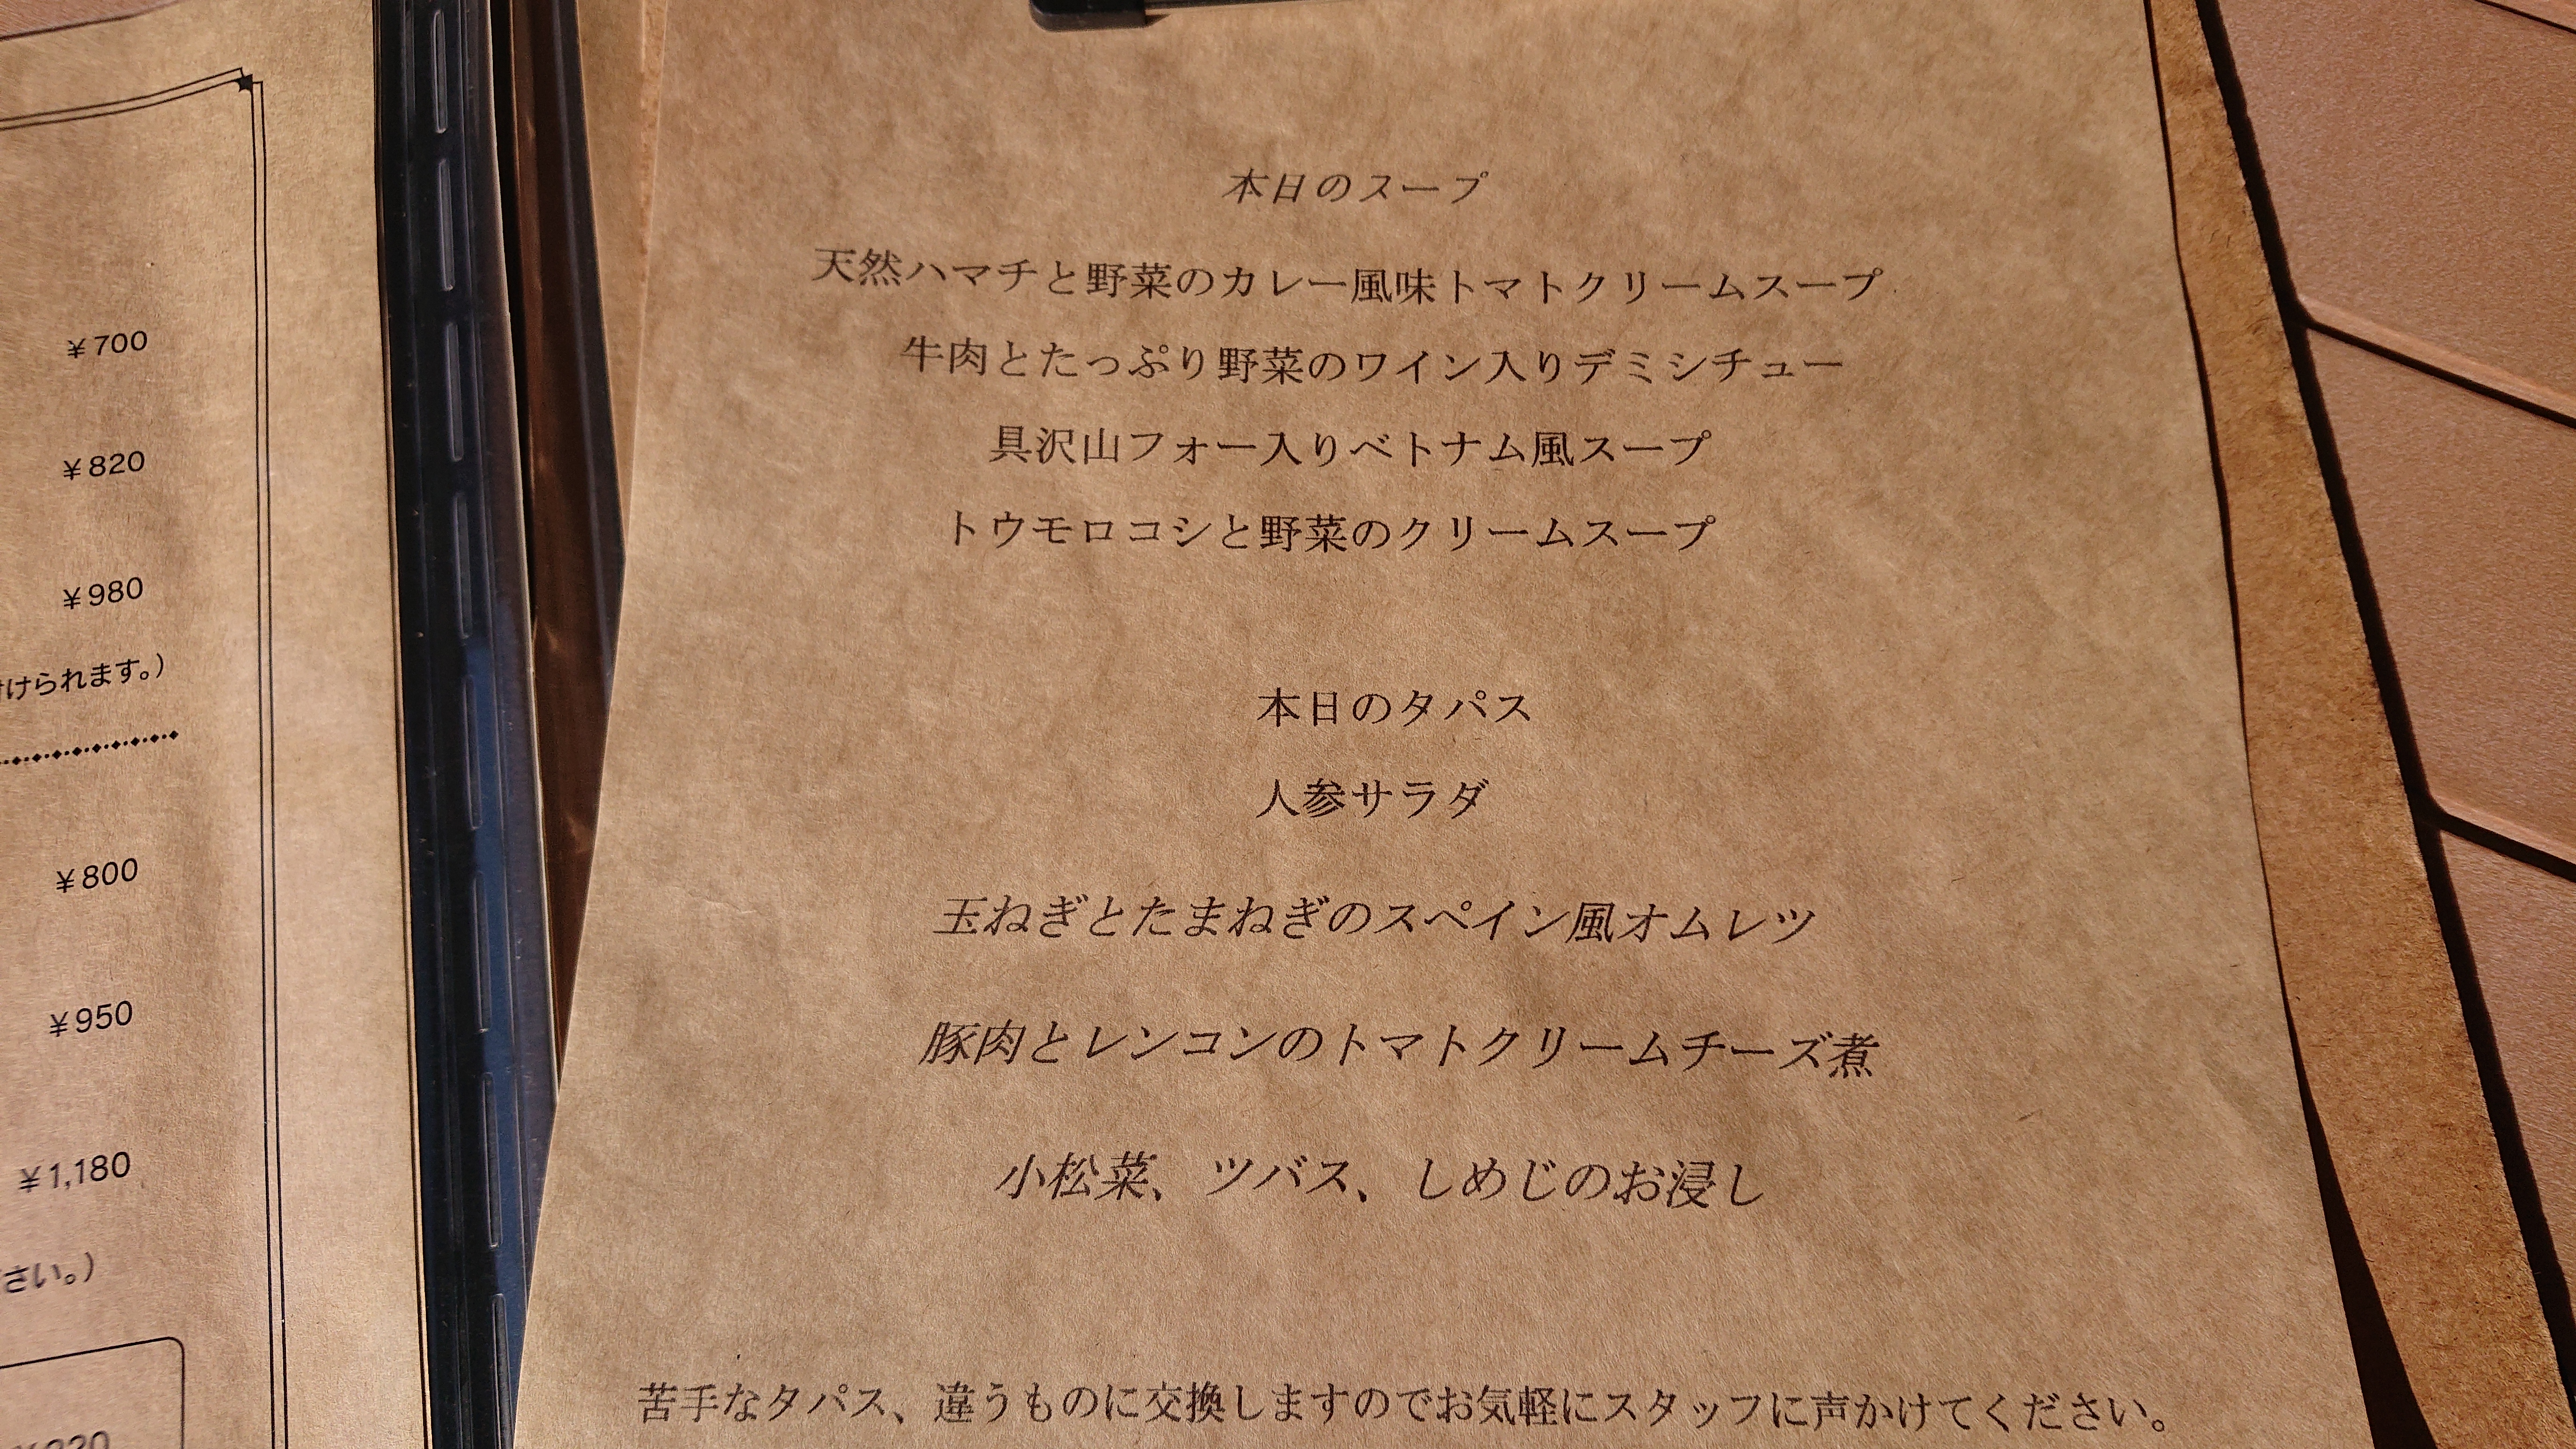 ¥700
¥820
¥980
けられます。)
¥800
¥950
¥1,180
さい。)
本日のスープ
天然ハマチと野菜のカレー風味トマトクリームスープ
牛肉とたっぷり野菜のワイン入りデミシチュー
具沢山フォー入りベトナム風スープ
トウモロコシと野菜のクリームスープ
本日のタパス
人参サラダ
玉ねぎとたまねぎのスペイン風オムレツ
豚肉とレンコンのトマトクリームチーズ煮
小松菜、ツバス、しめじのお浸し
苦手なタパス、違うものに交換しますのでお気軽にスタッフに声かけてください。